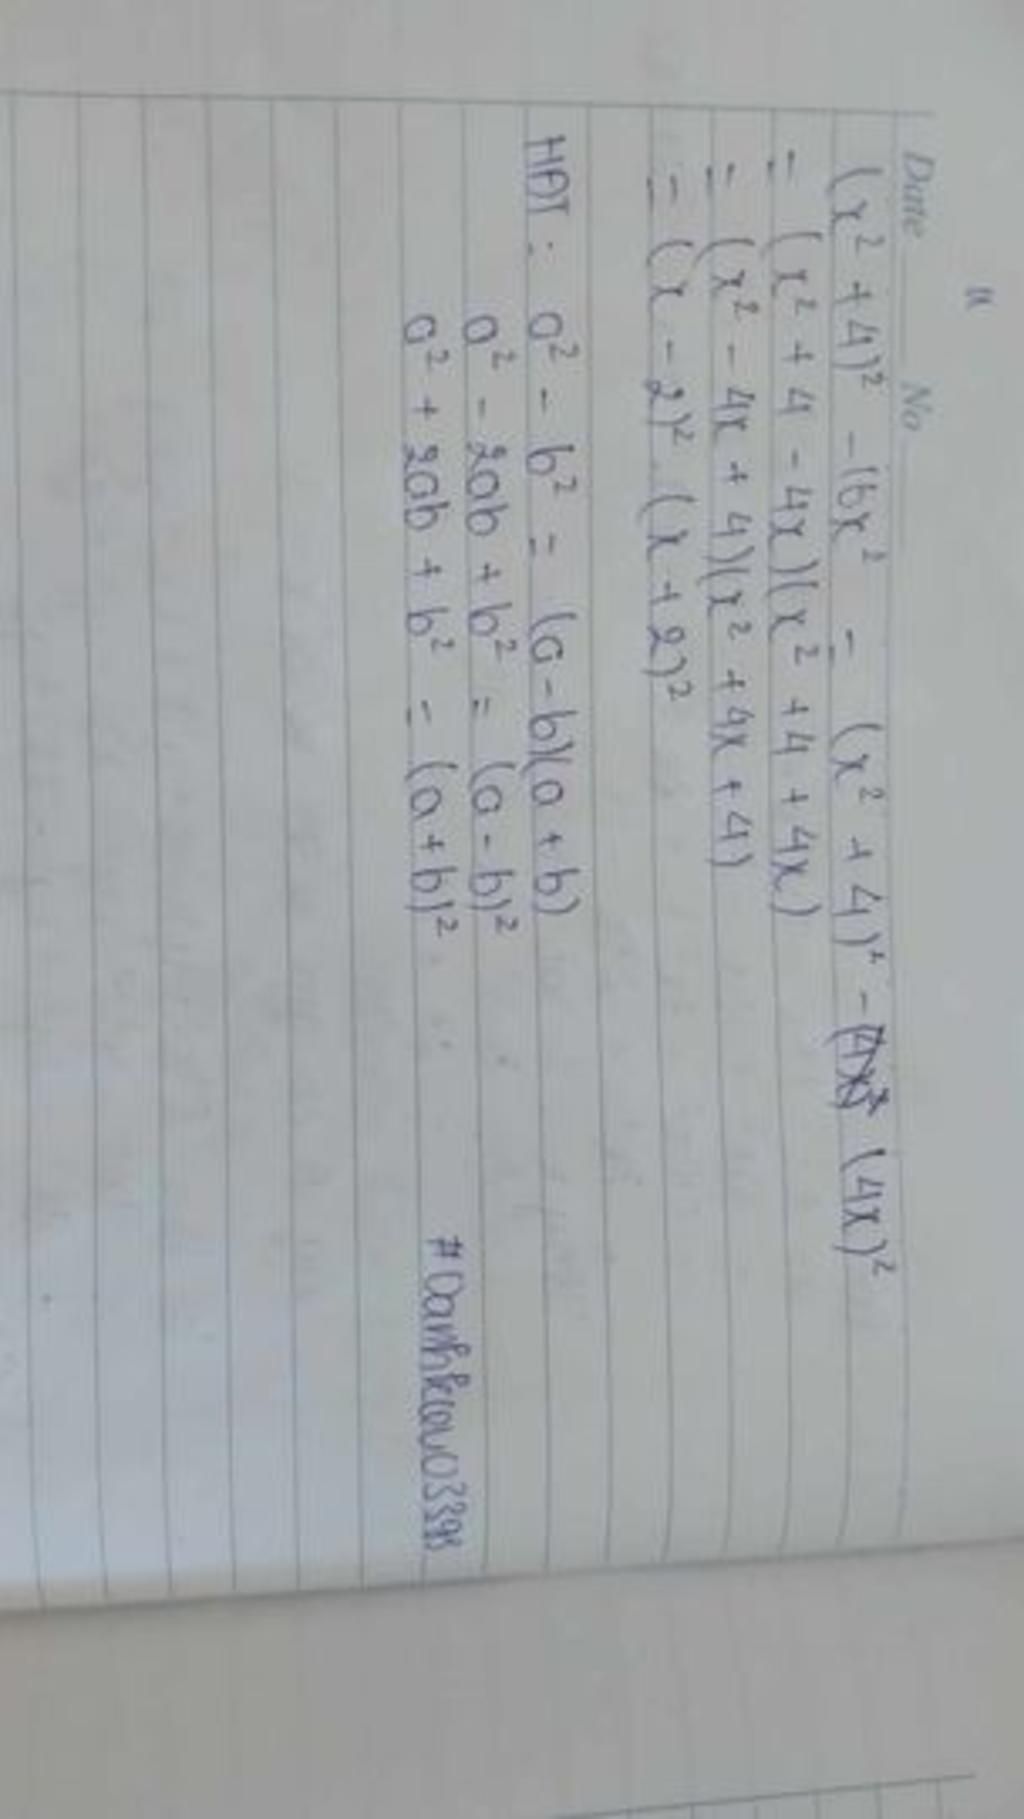 Date No
(x² + 4)² - 16x² = (x² + 4)² - (4x)²
= (x² + 4 - 4x)(x² + 4 + 4x)
= (x² - 4x + 4)(x² + 4x + 4)
= (x - 2)². (x + 2)²
HĐT : a² - b² = (a - b)(a + b)
a² - 2ab + b² = (a - b)²
a² + 2ab + b² = (a + b)²